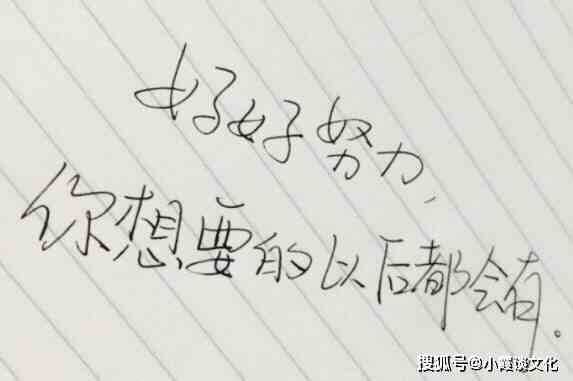 好好努力,
你想要的以后都会有。
搜狐号@小霞谈文化